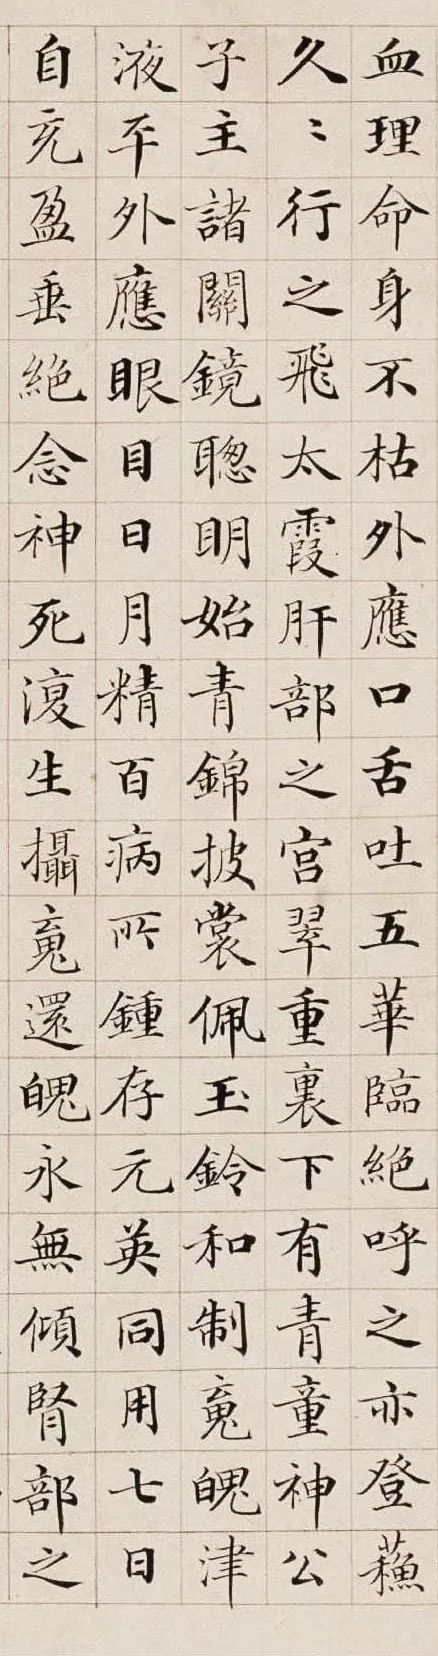 血理命身不枯外應口舌吐五華臨絶呼之亦登蘓
久〻行之飛太霞肝部之宫翠重裏下有青童神公
子主諸關鏡聦明始青錦披裳佩玉鈴和制䰟魄津
液平外應眼目日月精百病所鍾存元英同用七日
自充盈垂絶念神死復生攝䰟還魄永無傾腎部之